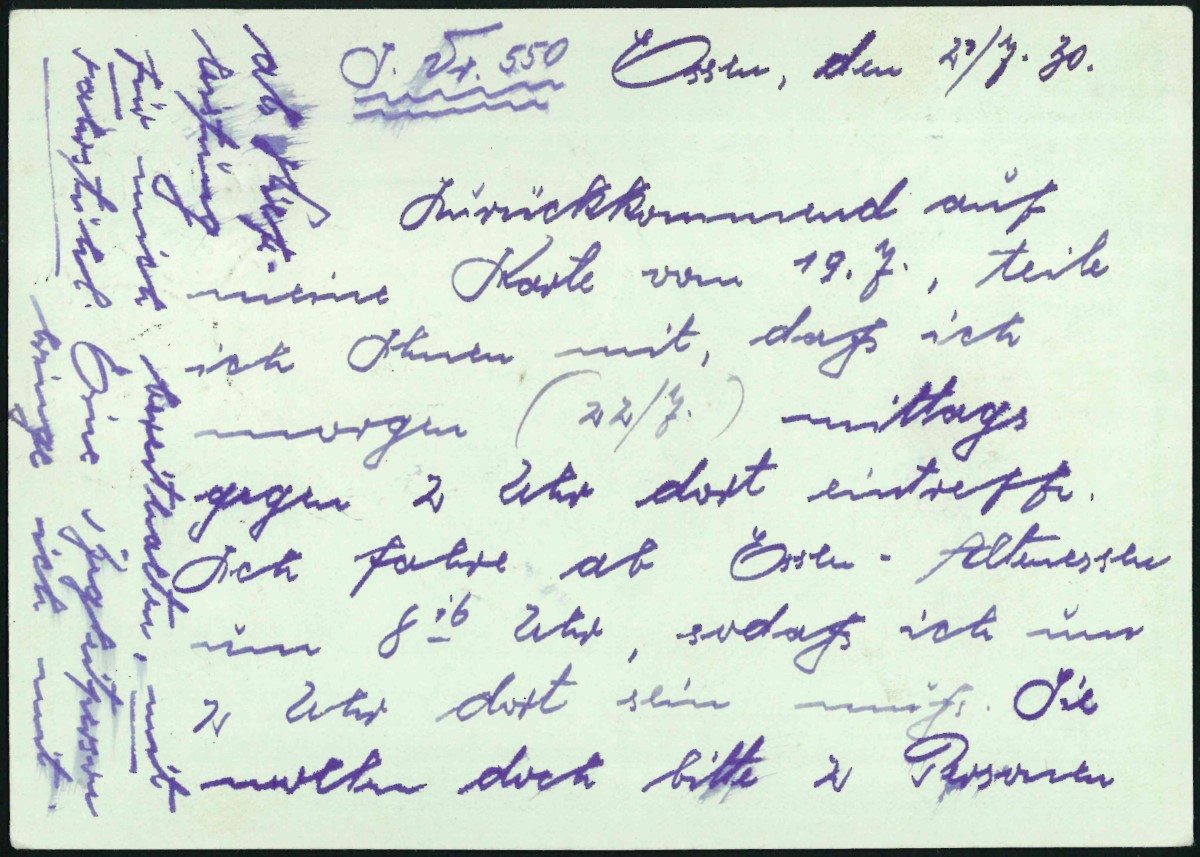 J. Nr. 550 Essen, den 21/7. 30.
Zurückkommend auf
meine Karte vom 19.7., teile
ich Ihnen mit, daß ich
morgen (22/7.) mittags
gegen 2 Uhr dort eintreffe.
Ich fahre ab Essen-Altenessen
um 8 16 Uhr, sodaß ich um
2 Uhr dort sein muß. Sie
wollen doch bitte 2 Personen
leistung
für mich bereithalten, mit
Fahrstuhl. Eine Begleitperson
bringe ich mit.